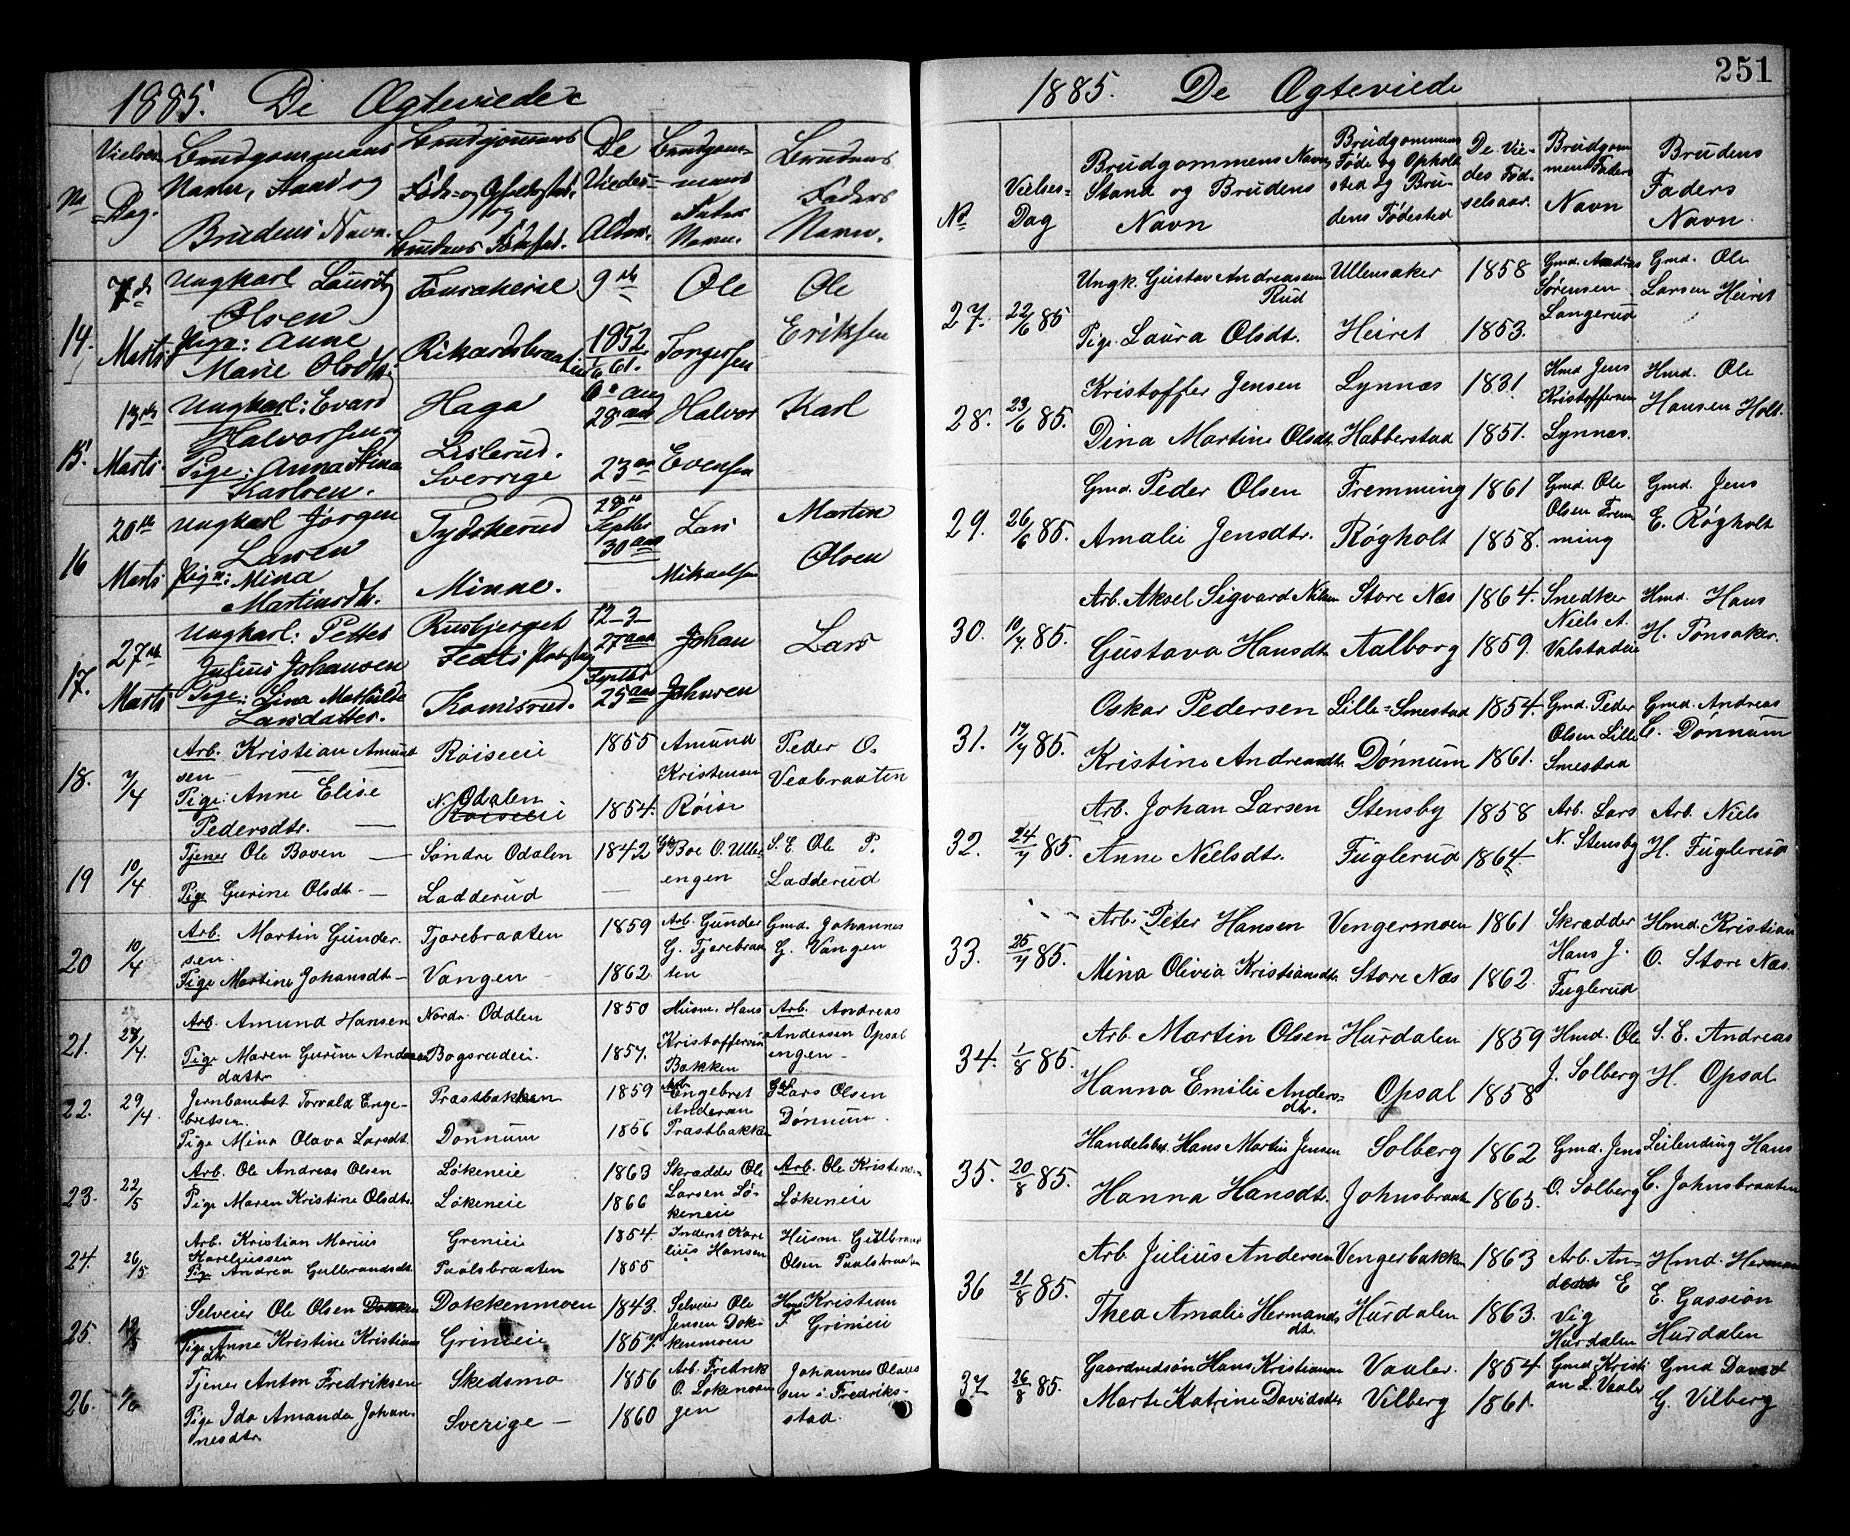 1885. De Ægteviede
No
Vielses-
Dag.
Brudgommens
Navn, Stand og
Brudens Navn.
Brudgommens
Føde- og Opholdssted
og
Brudens Fødested.
De
Viedes
Alder.
Brudgom-
mens
Faders
Navn.
Brudens
Faders
Navn.
14.
7de
Marts
Ungkarl Lauritz
Olsen
Pige: Anne
Marie Olsdtr.
1852
61.
Ole
Ole
Eriksen
15.
13de
Marts.
Ungkarl: Evard
Halvorsen
Pige: Anna Stina
Karlsen.
Haga
Lislerud.
Sverrige
28 aar
23 aar
Halvor
Evensen
Karl
16
20de
Marts
Ungkarl Jørgen
Larsen
Pige: Mina
Martinsdtr.
Tydskerud
Minne.
30 aar
Lars
Mikaelsen
Martin
Olsen
17.
27de
Marts
Ungkarl: Petter
Julius Johansen
Pige: Lina Mathilde
Larsdatter.
Rusbjerget
Komisrud.
12-3-
27 aar
25 aar
Johan
Johnsen
Lars
18.
7/4
Arb. Kristian Amund
sen
Pige: Anne Elise
Pedersdtr.
Røiseeie
N. Odalen
1855
1854.
Amund
Kristensen
Røise
Peder O.
Veabraaten
19
10/4
Tjener Ole Boven
Pige Gurine Olsdtr.
Søndre Odalen
Ladderud
1842
Boe O. Ulls
engen
S. E. Ole P.
Ladderud
20
10/4
Arb. Martin Gunder-
sen.
Pige Martine Johansdtr.
Tjærebraaten
Vangen
1859
1862.
Arb. Gunder
G. Tjærebraa
ten
Gmd. Johannes
G. Vangen
21.
28/4.
Arb. Amund Hansen
Pige Maren Gurine Anders
datter
Nordr. Odalen
Bogsrudeie.
1850
1857.
Husm. Hans
Kristoffersen
Bakken
Arb. Andreas
Andersen Opsal
engen
22.
29/4
Jernbanebet Torvald Enge-
bretsen.
Pige Mina Olava Larsdt.
Præstbakken
Dønnum
1859
1856
Arb.
Engebret
Andersen
Præstbakken
Lars Olsen
Dønnum
23.
22/5
Arb. Ole Andreas Olsen
Pige Maren Kristine Olsdtr.
Løkeneie
Løkeneie
1863
1866
Skrædder Ole
Larsen Lø-
keneie
Arb. Ole Kristensen
Løkeneie
24.
26/5
Arb. Kristian Marius
Kareliussen
Pige Andrea Gulbrandsdt.
Greneie
Paalsbraaten
1854.
1855
Inderst Kare
lius Hansen
Husm. Gulbrand
Olsen Paalsbraaten
25.
Selveier Ole Olsen Dokken
Pige Anne Kristine Kristians
dtr.
Dokkenmoen
Grineeie
1843.
1857.
Selveier Ole
Jensen Dok-
kenmoen
Kristian
F. Grineie
26.
1/6
Tjener Anton Fredriksen
Pige Ida Amanda Johan-
nesdtr.
Skedsmo
Sverige
1856
1860
Arb. Fredrik
O. Løkenoen
gen
Johannes Olaves
gen i Fredriks-
stad.
251
1885. De Ægteviede
No.
Vielses-
Dag
Brudgommens Navn,
Stand og Brudens
Navn
Brudgommens
Føde og Ophold
sted og Bru-
dens Fødested
De Vie-
des Fød-
selsaar.
Brudgom
mens Faders
Navn
Brudens
Faders
Navn.
27.
22/6 85
Ungk. Gustav Andreassen
Rud
Pige. Laura Olsdt.
Ullensaker
Heiret
1858
1853.
Gmd. Andreas
Sørensen
Langerud
Gmd. Ole
Larsen Heiret
28.
23/6 85.
Kristoffer Jensen
Dina Martine Olsdt.
Lynnæs
Habberstad
1831.
1851.
Hmd Jens
Kristoffersen
Lynnæs.
Hmd. Ole
Hansen Holt.
29.
26/6 85.
Gmd. Peder Olsen
Amalie Jensdtr.
Fremming
Røgholt
1861
1858.
Gmd. Ole
Olsen Frem
ming
Gmd. Jens
E. Røgholt
30.
10/7 85.
Arb. Aksel Sigvard Nilsen
Gustava Hansdt.
Store Næs
Aalborg
1864.
1859.
Snedker
Niels A.
Valstadeie
Hmd. Hans
H. Tønsaker.
31.
17/7 85.
Oskar Pedersen
Kristine Andreasdtr.
Lille-Smestad
Dønnum
1854.
1861.
Gmd. Peder
Olsen Lille
Smestad
Gmd. Andreas
C. Dønnum
32.
24/7 85.
Arb. Johan Larsen
Anne Nielsdt.
Stensby
Fuglerud
1858
1864
Arb. Lars
N. Stensby
Arb. Niels
H. Fuglerud
33.
25/7 85.
Arb. Peter Hansen
Mina Olivia Kristiansdt.
Vengermoen
Store Næs
1861
1862.
Skrædder
Hans J.
Fuglerud
Hmd. Kristian
O. Store Næs.
34.
1/8 85.
Arb. Martin Olsen
Hanna Emilie Anders-
dtr.
Hurdalen
Opsal
1859
1858
Hmd. Ole
J. Solberg
S. E. Andreas
H. Opsal
35.
20/8 85.
Handelsbet. Hans Martin Jensen
Hanna Hansdt.
Solberg
Johnsbraaten
1862
1865.
Gmd. Jens
O. Solberg
Leilending Hans
C. Johnsbraaten
36
21/8 85.
Arb. Julius Andersen
Thea Amalie Hermands
dt.
Vengerbakken
Hurdalen
1863
1863.
Arb. An-
E
Vig
Hurdalen
Hmd. Herman
E. Gassiøn
Hurdalen
37
26/8 85.
Gaardmedsøn Hans Kristiansen
Marte Katrine Davidsdtr
Vaaler.
Vilberg
1854
1861.
Gmd. Kristi
an L. Vaaler
Gmd David
G. Vilberg